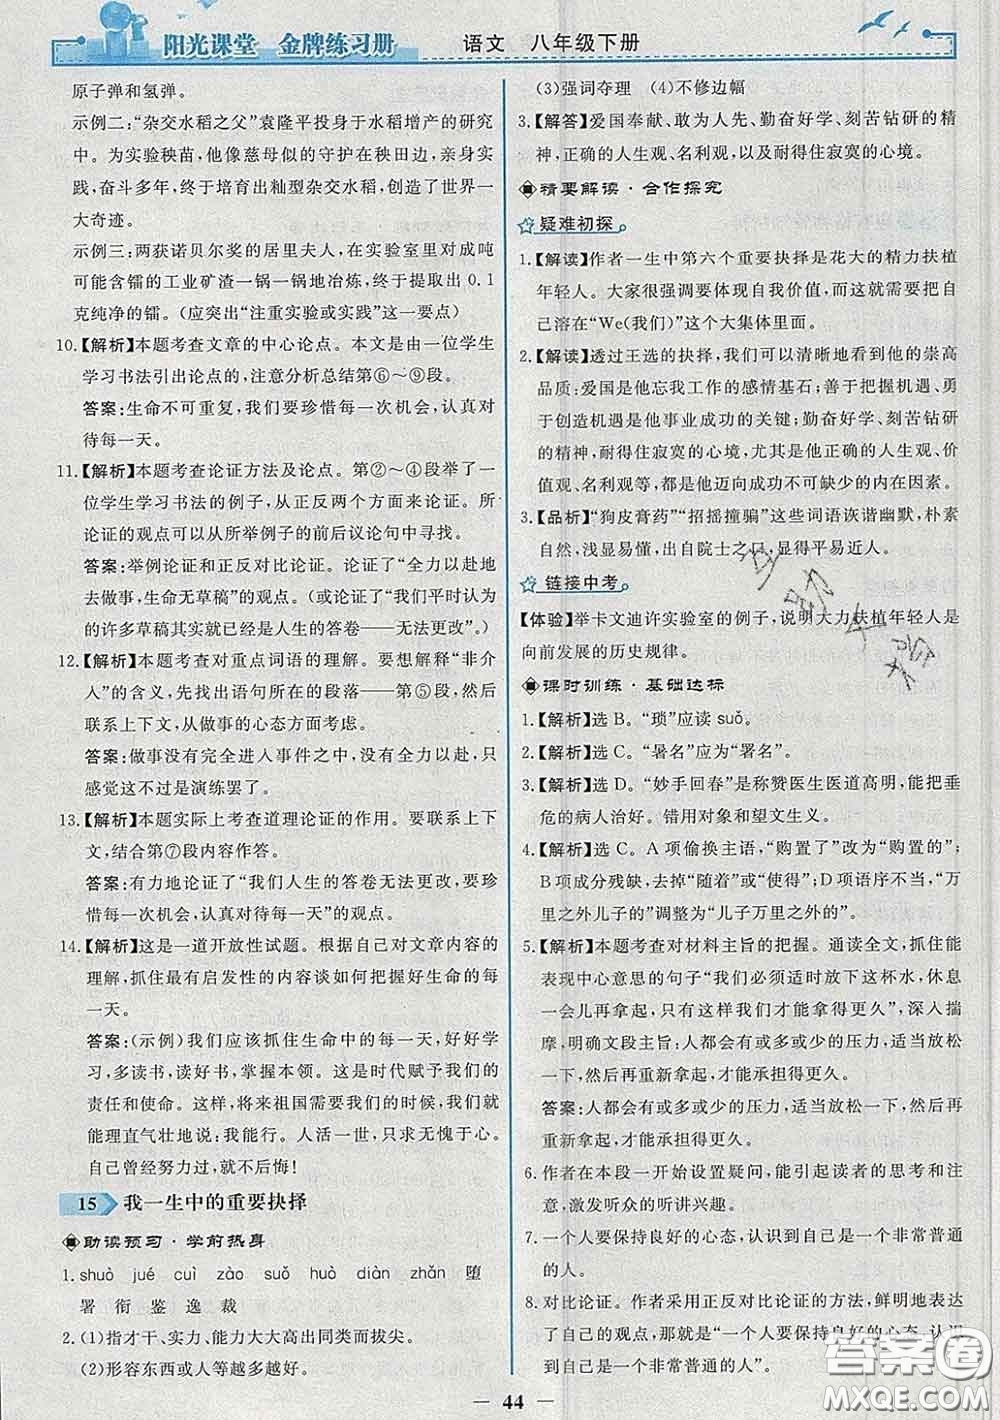 阳光课堂 金牌练习册 语文 八年级下册
原子弹和氢弹。
示例二：“杂交水稻之父”袁隆平投身于水稻增产的研究
中。为实验秧苗，他像慈母似的守护在秧田边，亲身实
践，奋斗多年，终于培育出籼型杂交水稻，创造了世界一
大奇迹。
示例三：两获诺贝尔奖的居里夫人，在实验室里对成吨
可能含镭的工业矿渣一锅一锅地冶炼，终于提取出0.1
克纯净的镭。（应突出“注重实验或实践”这一要点）
10.【解析】本题考查文章的中心论点。本文是由一位学生
学习书法引出论点的，注意分析总结第⑥～⑨段。
答案：生命不可重复，我们要珍惜每一次机会，认真对
待每一天。
11.【解析】本题考查论证方法及论点。第②～④段举了一
位学生学习书法的例子，从正反两个方面来论证。所
论证的观点可以从所举例子的前后议论句中寻找。
答案：举例论证和正反对比论证。论证了“全力以赴地
去做事，生命无草稿”的观点。（或论证了“我们所认为
的许多草稿其实就已经是人生的答卷——无法更改”。）
12.【解析】本题考查对重点词语的理解。要想解释“非介
入”的含义，先找出语句所在的段落——第⑤段，然后
联系上下文，从做事的心态方面考虑。
答案：做事没有完全进入事件之中，没有全力以赴，只
感觉这不过是演练罢了。
13.【解析】本题实际上考查道理论证的作用。要联系上下
文，结合第⑦段内容作答。
答案：有力地论证了“我们人生的答卷无法更改，要珍
惜每一次机会，认真对待每一天”的观点。
14.【解析】这是一道开放性试题。根据自己对文章内容的
理解，抓住最有启发性的内容谈如何把握好生命的每
一天。
答案：（示例）我们应该抓住生命中的每一天，好好学
习，多读书，读好书，掌握本领。这是时代赋予我们的
责任和使命。这样，将来祖国需要我们的时候，我们就
能理直气壮地说：我能行。人活一世，只求无愧于心。
自己曾经努力过，就不后悔！
15 我一生中的重要抉择
助读预习·学前热身
1. shuò jué cuì zào suǒ huò diàn zhǎn 堕
署 衔 鉴 逸 裁
2. (1)指才干、实力、能力大大高出同类而拔尖。
(2)形容东西或人等越多越好。
(3)强词夺理 (4)不修边幅
3.【解答】爱国奉献、敢为人先、勤奋好学、刻苦钻研的精
神，正确的人生观、名利观，以及耐得住寂寞的心境。
精要解读·合作探究
疑难初探
1.【解读】作者一生中第六个重要抉择是花大的精力扶植
年轻人。大家很强调要体现自我价值，而这就需要把自
己溶在“We(我们)”这个大集体里面。
2.【解读】透过王选的抉择，我们可以清晰地看到他的崇高
品质：爱国是他忘我工作的感情基石；善于把握机遇、勇
于创造机遇是他事业成功的关键；勤奋好学、刻苦钻研
的精神，耐得住寂寞的心境，尤其是正确的人生观、价
值观、名利观等，都是他迈向成功不可缺少的内在因素。
3.【品析】“狗皮膏药”“招摇撞骗”这些词语诙谐幽默，朴素
自然，浅显易懂，出自院士之口，显得平易近人。
链接中考
【体验】举卡文迪许实验室的例子，说明大力扶植年轻人是
向前发展的历史规律。
课时训练·基础达标
1.【解析】选 B。“琐”应读 suǒ。
2.【解析】选 C。“暑名”应为“署名”。
3.【解析】选 D。“妙手回春”是称赞医生医道高明，能把垂
危的病人治好。错用对象和望文生义。
4.【解析】选 C。A 项偷换主语，“购置了”改为“购置的”；
B 项成分残缺，去掉“随着”或“使得”；D 项语序不当，“万
里之外儿子的”调整为“儿子万里之外的”。
5.【解析】本题考查对材料主旨的把握。通读全文，抓住能
表现中心意思的句子“我们必须适时放下这杯水，休息
一会儿再拿起，只有这样我们才能拿得更久”，深入揣
摩，明确文段主旨：人都会有或多或少的压力，适当放松
一下，然后再重新拿起，才能承担得更久。
答案：人都会有或多或少的压力，适当放松一下，然后再
重新拿起，才能承担得更久。
6. 作者在本段一开始设置疑问，能引起读者的思考和注
意，激发听众的听讲兴趣。
7. 一个人要保持良好的心态，认识到自己是一个非常普通
的人。
8. 对比论证。作者采用正反对比论证的方法，鲜明地表达
了自己的观点，那就是“一个人要保持良好的心态，认识
到自己是一个非常普通的人”。
44
答案圈
MXQE.COM